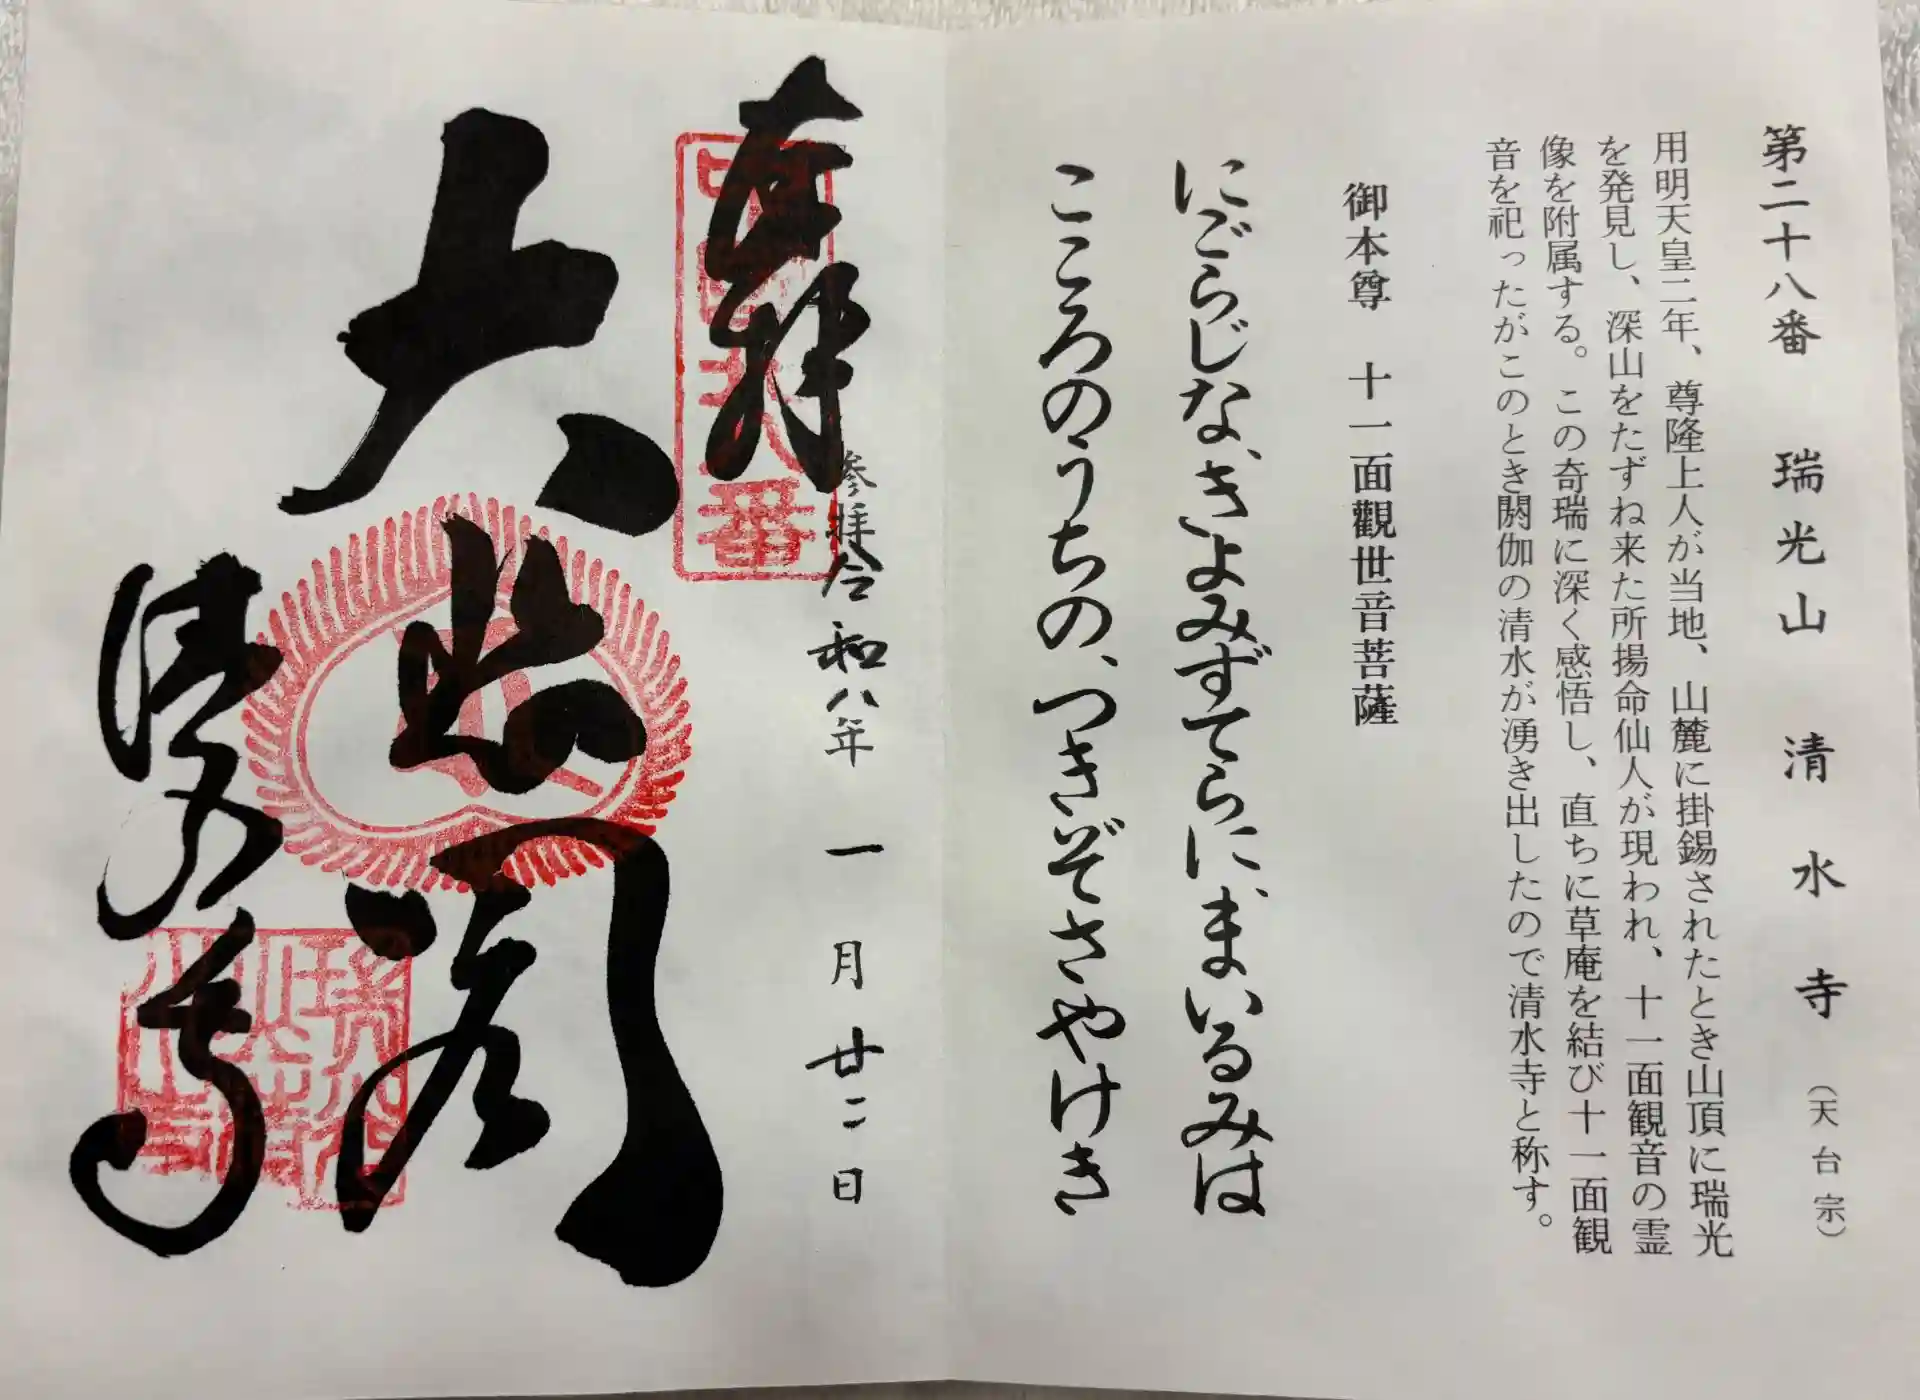 第二十八番 瑞光山 清水寺 (天台宗)
用明天皇二年、尊隆上人が当地、山麓に掛錫されたとき山頂に瑞光
を発見し、深山をたずね来た所揚命仙人が現われ、十一面観音の霊
像を附属する。この奇瑞に深く感悟し、直ちに草庵を結び十一面観
音を祀ったがこのとき閼伽の清水が湧き出したので清水寺と称す。
御本尊 十一面觀世音菩薩
にごらじな、きよみずてらに、まいるみは
こころのうちの、つきぞさやけき
奉拝
参拝令和八年 一月廿二日
大悲閣
清水寺